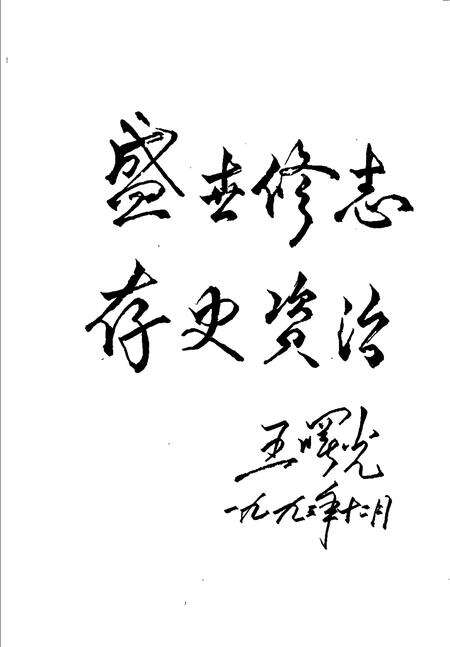 盛世修志
存史資治
王曙光
一九九三年十二月